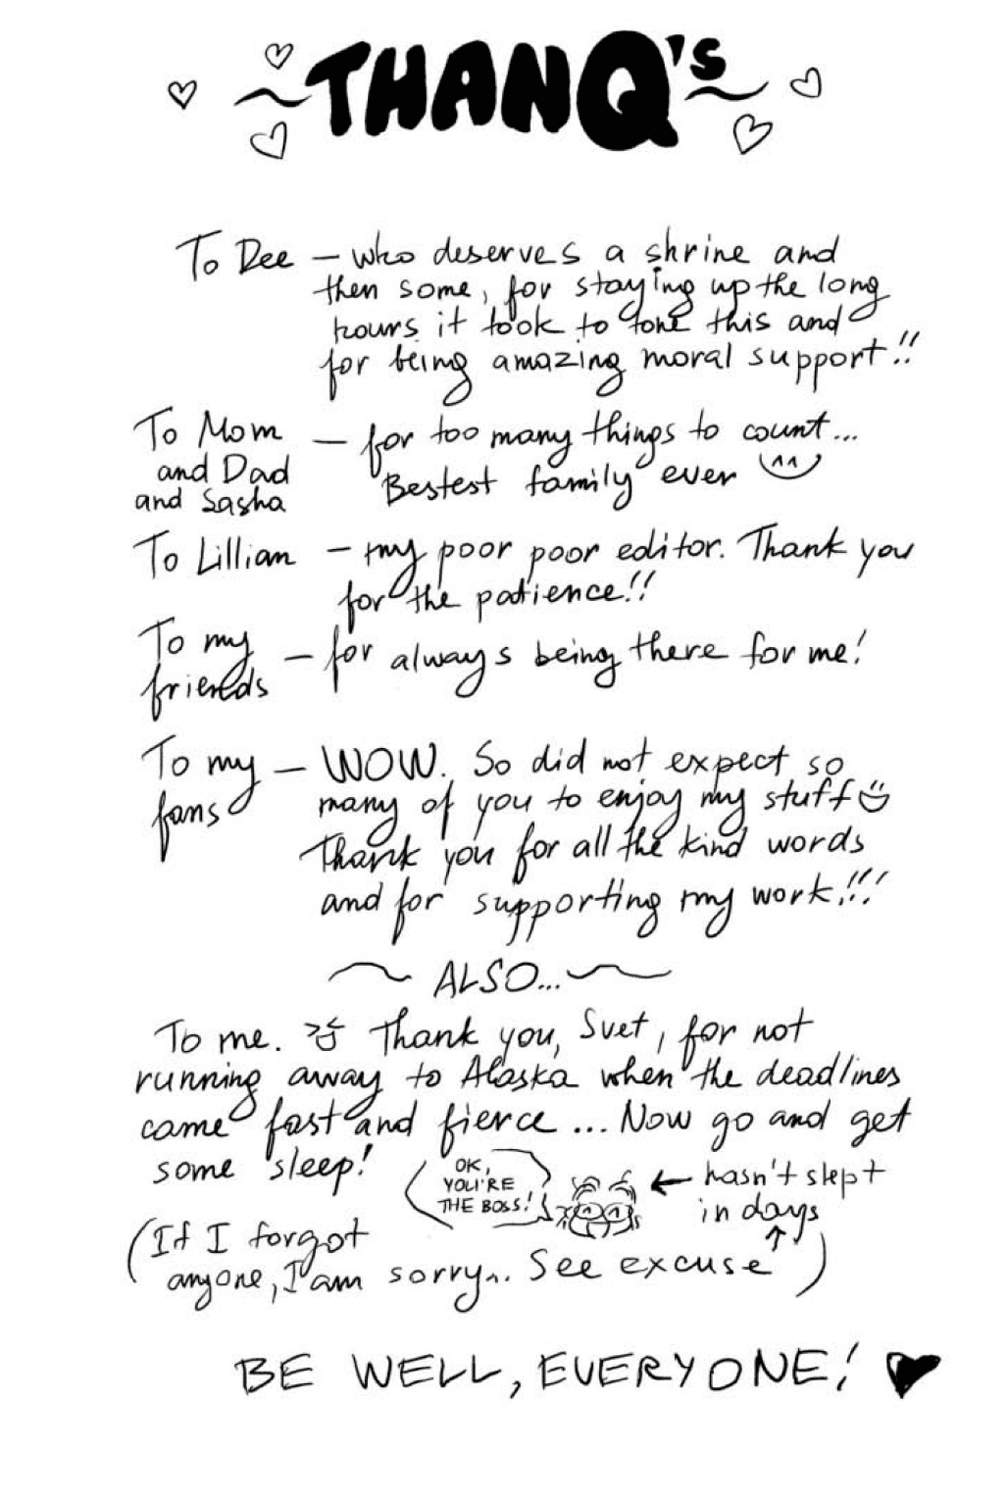 THANQ's
To Dee – who deserves a shrine and
then some, for staying up the long
hours it took to tone this and
for being amazing moral support!!
To Mom
and Dad
and Sasha
– for too many things to count...
Bestest family ever
To Lillian – my poor poor editor. Thank you
for the patience!!
To my
friends
– for always being there for me!
To my
fans
– WOW. So did not expect so
many of you to enjoy my stuff
Thank you for all the kind words
and for supporting my work!!!
~ ALSO... ~
To me. Thank you, Svet, for not
running away to Alaska when the deadlines
came fast and fierce ... Now go and get
some sleep!
OK,
YOU'RE
THE BOSS!
← hasn't slept
in days
(If I forgot
anyone, I am sorry... See excuse ↑)
BE WELL, EVERYONE! ♥